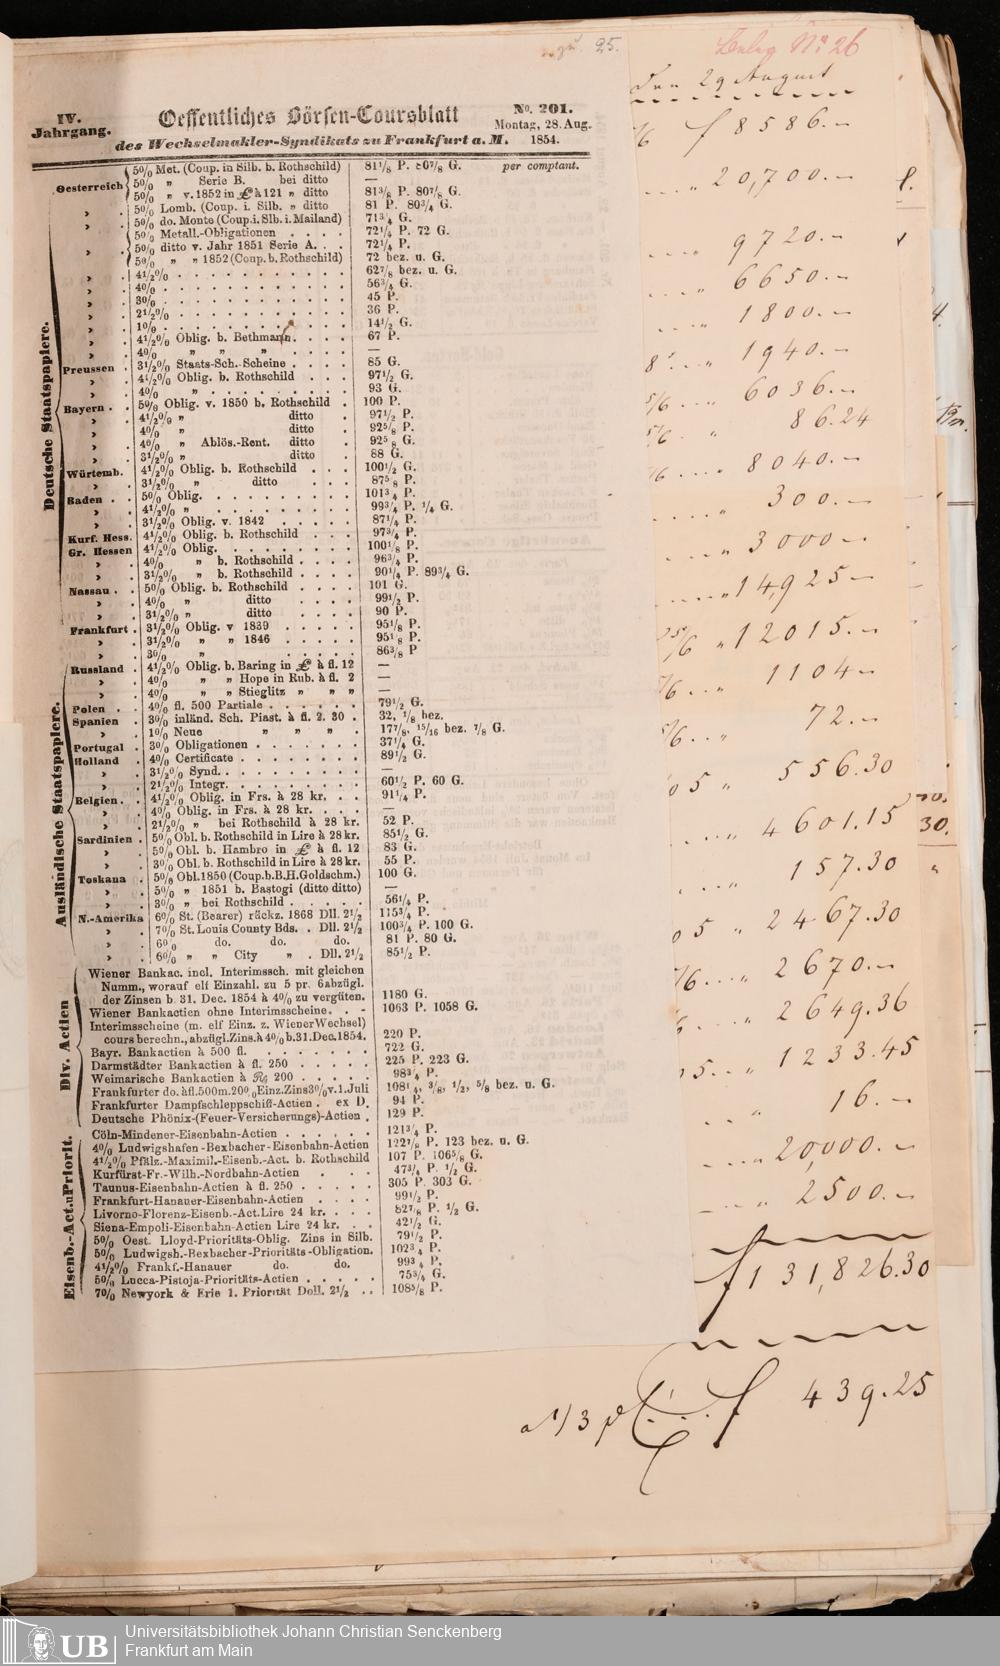 zu. 25.
IV.
Jahrgang.
Oeffentliches Börsen-Coursblatt
des Wechselmakler-Syndikats zu Frankfurt a. M.
No. 201.
Montag, 28. Aug.
1854.
per comptant.
Deutsche Staatspapiere.
Oesterreich 5% Met. (Coup. in Silb. b. Rothschild) 81 1/8 P. 80 7/8 G.
5% „ Serie B. bei ditto —
5% „ v. 1852 in £ à 121 „ ditto 81 3/8 P. 80 7/8 G.
„ 5% Lomb. (Coup. i. Silb. „ ditto 81 P. 80 3/4 G.
„ 5% do. Monte (Coup. i. Slb. i. Mailand) 71 3/4 G.
„ 5% Metall.-Obligationen 72 1/4 P. 72 G.
„ 5% ditto v. Jahr 1851 Serie A. 72 1/4 P.
„ 5% „ „ 1852 (Coup. b. Rothschild) 72 bez. u. G.
„ 4 1/2% 62 7/8 bez. u. G.
„ 4% 56 3/4 G.
„ 3% 45 P.
„ 2 1/2% 36 P.
„ 1% 14 1/2 G.
„ 4 1/2% Oblig. b. Bethmann 67 P.
„ 4% „ „ „ —
Preussen 3 1/2% Staats-Sch.-Scheine 85 G.
„ 4 1/2% Oblig. b. Rothschild 97 1/2 G.
„ 4% „ 93 G.
Bayern 5% Oblig. v. 1850 b. Rothschild 100 P.
„ 4 1/2% „ ditto 97 1/2 P.
„ 4% „ ditto 92 5/8 P.
„ 4% „ Ablös.-Rent. ditto 92 5/8 G.
„ 3 1/2% „ ditto 88 G.
Würtemb. 4 1/2% Oblig. b. Rothschild 100 1/2 G.
„ 3 1/2% „ ditto 87 5/8 P.
Baden 5% Oblig. 101 3/4 P.
„ 4 1/2% „ 99 3/4 P. 1/4 G.
„ 3 1/2% Oblig. v. 1842 87 1/4 P.
Kurf. Hess. 4 1/2% Oblig. b. Rothschild 97 3/4 P.
Gr. Hessen 4 1/2% Oblig. 100 1/8 P.
„ 4% „ b. Rothschild 96 3/4 P.
„ 3 1/2% „ b. Rothschild 90 1/4 P. 89 3/4 G.
Nassau 5% Oblig. b. Rothschild 101 G.
„ 4% „ ditto 99 1/2 P.
„ 3 1/2% „ ditto 90 P.
Frankfurt 3 1/2% Oblig. v 1839 95 1/8 P.
„ 3 1/2% „ „ 1846 95 1/8 P.
„ 3% „ 86 3/8 P
Ausländische Staatspapiere.
Russland 4 1/2% Oblig. b. Baring in £ à fl. 12 —
„ 4% „ „ Hope in Rub. à fl. 2 —
„ 4% „ „ Stieglitz „ „ „ —
Polen 4% fl. 500 Partiale 79 1/2 G.
Spanien 3% inländ. Sch. Piast. à fl. 2. 30 32, 1/8 bez.
„ 1% Neue „ „ „ 17 7/8, 15/16 bez. 7/8 G.
Portugal 3% Obligationen 37 1/4 G.
Holland 4% Certificate 89 1/2 G.
„ 3 1/2% Synd. —
„ 2 1/2% Integr. 60 1/2 P. 60 G.
Belgien 4 1/2% Oblig. in Frs. à 28 kr. 91 1/4 P.
„ 4% Oblig. in Frs. à 28 kr.
„ 2 1/2% „ bei Rothschild à 28 kr. 52 P.
Sardinien 5% Obl. b. Rothschild in Lire à 28 kr. 85 1/2 G.
„ 5% Obl. b. Hambro in £ à fl. 12 83 G.
„ 3% Obl. b. Rothschild in Lire à 28 kr. 55 P.
Toskana 5% Obl. 1850 (Coup. b. B. H. Goldschm.) 100 G.
„ 5% „ 1851 b. Bastogi (ditto ditto) —
„ 3% „ bei Rothschild 56 1/4 P.
N.-Amerika 6% St. (Bearer) räckz. 1868 Dll. 2 1/2 115 3/4 P.
„ 7% St. Louis County Bds. Dll. 2 1/2 100 3/4 P. 100 G.
„ 6% do. do. do. 81 P. 80 G.
„ 6% „ „ City „ Dll. 2 1/2 85 1/2 P.
Div. Actien
Wiener Bankac. incl. Interimssch. mit gleichen
Numm., worauf elf Einzahl. zu 5 pr. 6abzügl.
der Zinsen b. 31. Dec. 1854 à 4% zu vergüten. 1180 G.
Wiener Bankactien ohne Interimsscheine. 1063 P. 1058 G.
Interimsscheine (m. elf Einz. z. Wiener Wechsel)
cours berechn., abzügl. Zins. à 4% b. 31. Dec. 1854. 220 P.
Bayr. Bankactien à 500 fl. 722 G.
Darmstädter Bankactien à fl. 250 225 P. 223 G.
Weimarische Bankactien à Rß 200 98 3/4 P.
Frankfurter do. à fl. 500 m. 20% Einz. Zins 3% v. 1. Juli 108 1/4, 3/8, 1/2, 5/8 bez. u. G.
Frankfurter Dampfschleppschiff-Actien ex D. 94 P.
Deutsche Phönix-(Feuer-Versicherungs)-Actien 129 P.
Eisenb.-Act. u Priorit.
Cöln-Mindener-Eisenbahn-Actien 121 3/4 P.
4% Ludwigshafen-Bexbacher-Eisenbahn-Actien 122 7/8 P. 123 bez. u. G.
4 1/2% Pfälz.-Maximil.-Eisenb.-Act. b. Rothschild 107 P. 106 5/8 G.
Kurfürst-Fr.-Wilh.-Nordbahn-Actien 47 3/4 P. 1/2 G.
Taunus-Eisenbahn-Actien à fl. 250 305 P. 303 G.
Frankfurt-Hanauer-Eisenbahn-Actien 99 1/2 P.
Livorno-Florenz-Eisenb.-Act. Lire 24 kr. 82 7/8 P. 1/2 G.
Siena-Empoli-Eisenbahn-Actien Lire 24 kr. 42 1/2 G.
5% Oest. Lloyd-Prioritäts-Oblig. Zins in Silb. 79 1/2 P.
5% Ludwigsh.-Bexbacher-Prioritäts-Obligation. 102 3/4 P.
4 1/2% Frankf.-Hanauer do. do. 99 3/4 P.
5% Lucca-Pistoja-Prioritäts-Actien 75 3/4 G.
7% Newyork & Erie 1. Priorität Doll. 2 1/2 108 5/8 P.
Beleg No 26
Den 29 August
f 8586.—
„ 20,700.—
„ 9720.—
„ 6650.—
„ 1800.—
„ 1940.—
„ 6036.—
„ 86.24
„ 8040.—
„ 300.—
„ 3000.—
„ 14,925.—
„ 12015.—
„ 1104.—
„ 72.—
„ 556.30
„ 4601.15
„ 157.30
„ 2467.30
„ 2670.—
„ 2649.36
„ 1233.45
„ 16.—
„ 20,000.—
„ 2500.—
f 131,826.30
f 439.25
30.
Universitätsbibliothek Johann Christian Senckenberg
Frankfurt am Main
UB